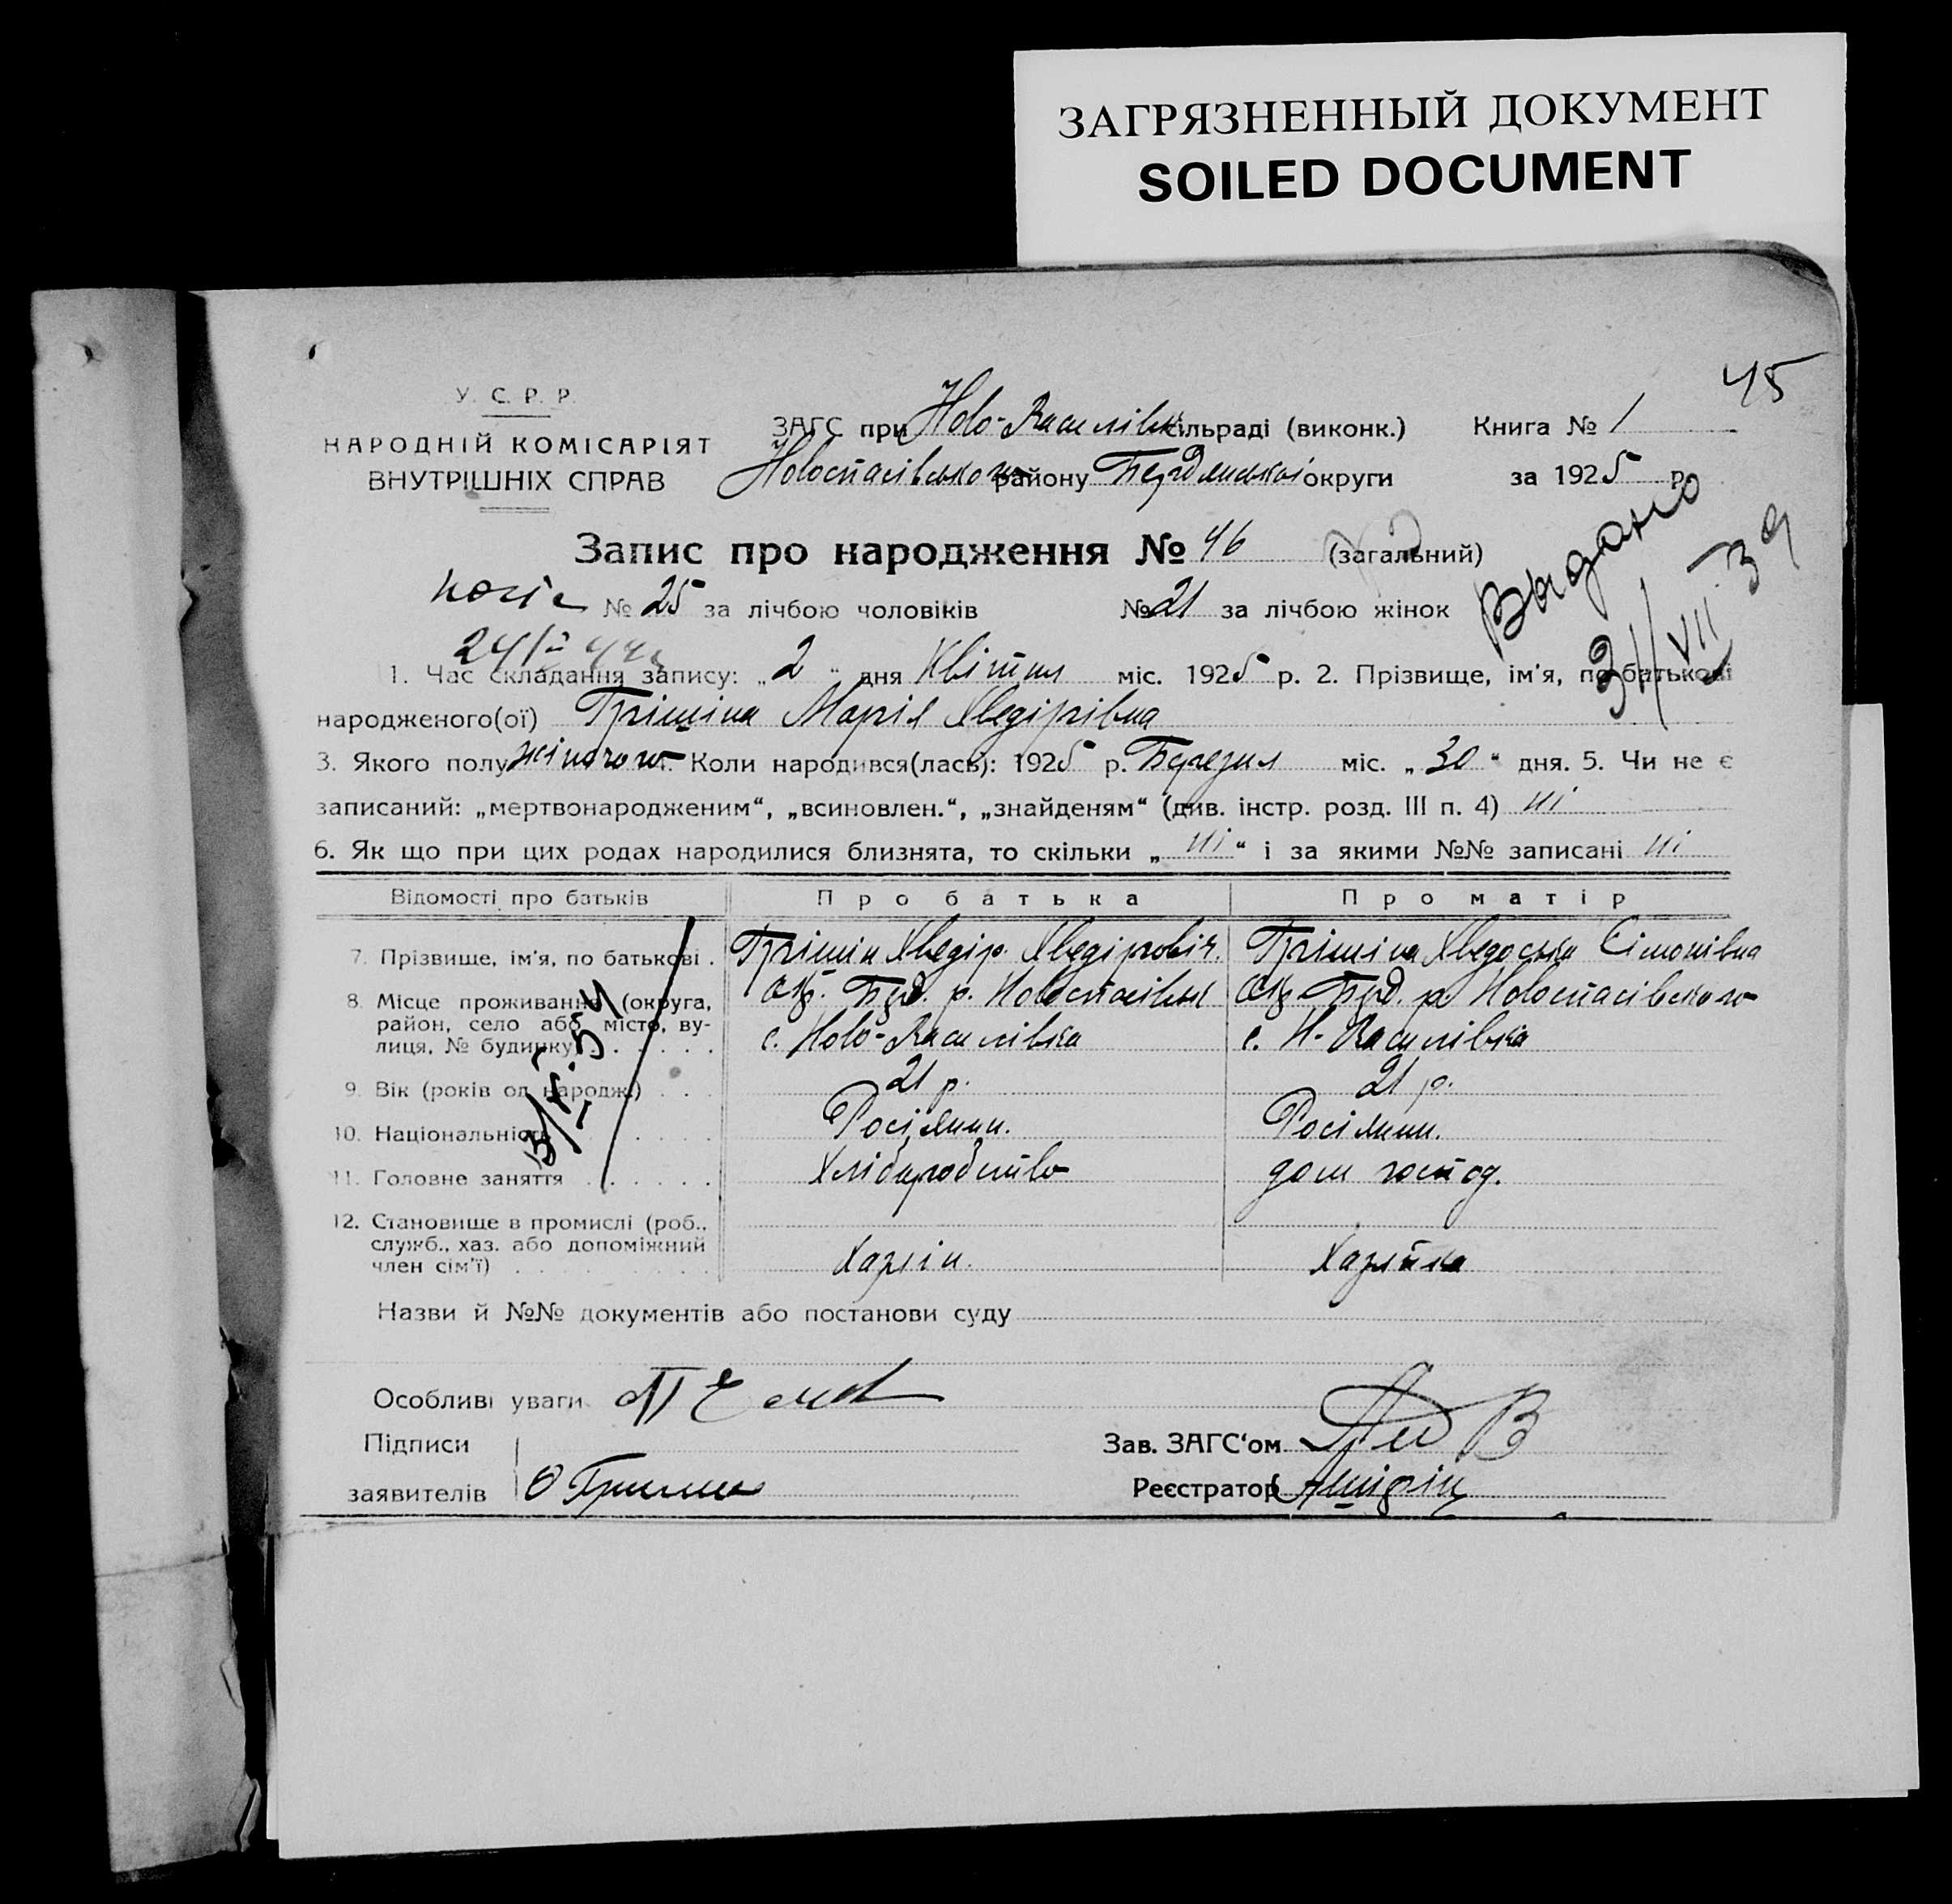 ЗАГРЯЗНЕННЫЙ ДОКУМЕНТ
SOILED DOCUMENT
45
У. С. Р. Р.
НАРОДНІЙ КОМІСАРІЯТ
ВНУТРІШНІХ СПРАВ
ЗАГС при Ново-Василівк. сільраді (виконк.)
Книга № 1
Новоспасівського району Бердянської округи
за 1925 р.
Запис про народження № 46 (загальний)
копія № 25 за лічбою чоловіків № 21 за лічбою жінок
Выдано
31/VII 39
1. Час складання запису: „ 2 “ дня Квітня міс. 1925 р. 2. Прізвище, ім'я, по батькові
народженого(ої) Грішіна Марія Хведірівна
3. Якого полу жіночого. Коли народився(лась): 1925 р. Березня міс. „ 30 “ дня. 5. Чи не є
записаний: „мертвонародженим“, „всиновлен.“, „знайденям“ (див. інстр. розд. III п. 4) ні
6. Як що при цих родах народилися близнята, то скільки „ ні “ і за якими №№ записані ні
Відомості про батьків Про батька Про матір
7. Прізвище, ім'я, по батькові . Грішін Хведір. Хведірович. Грішіна Хведоська Сімонівна
8. Місце проживання (округа, район, село або місто, вулиця, № будинку) Окр. Берд. р. Новоспасівськ Окр. Берд. р. Новоспасівського
с. Ново-Василівка с. Н-Василівка
9. Вік (років од народж.) 21 р. 21 р.
10. Національність Росіянин. Росіянин.
11. Головне заняття Хліборобство дом господ.
12. Становище в промислі (роб., служб., хаз. або допоміжний член сім'ї) Хазяін. Хазяйка
Назви й №№ документів або постанови суду
Особливі уваги
Підписи
заявителів О Гришин
Зав. ЗАГС'ом
Реєстратор